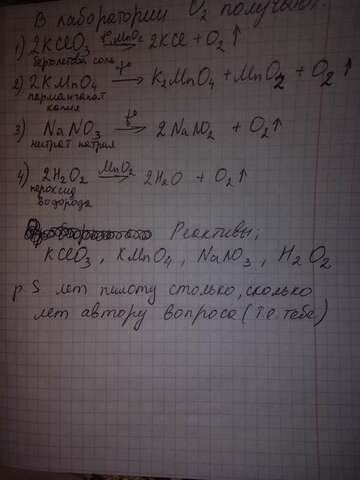 В лаборатории O₂ получают:
1) 2KClO₃ t°,MnO₂→ 2KCl + O₂↑
бертолетова соль
2) 2KMnO₄ t°→ K₂MnO₄ + MnO₂ + O₂↑
перманганат
калия
3) NaNO₃ t°→ 2NaNO₂ + O₂↑
нитрат натрия
4) 2H₂O₂ MnO₂→ 2H₂O + O₂↑
пероксид
водорода
Реактивы;
KClO₃, KMnO₄, NaNO₃, H₂O₂
p.S лет пилоту столько, сколько
лет автору вопроса (т.е тебе)